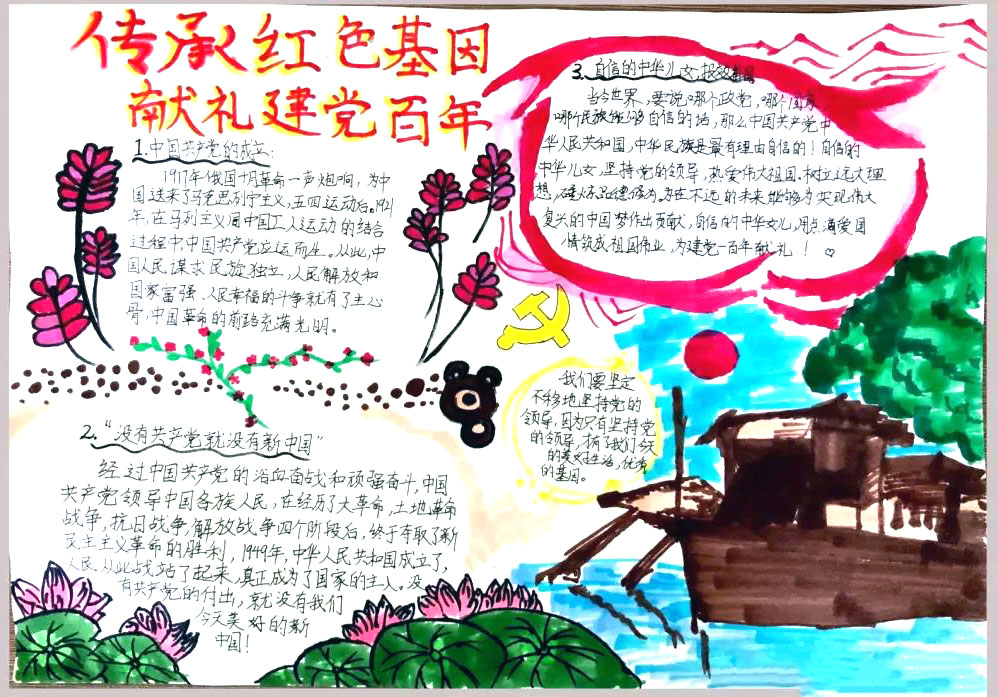 传承红色基因
献礼建党百年
1.中国共产党的成立:
1917年俄国十月革命一声炮响,为中
国送来了马克思列宁主义,五四运动后。1921
年,在马列主义同中国工人运动的结合
过程中中国共产党应运而生。从此,中
国人民谋求民族独立,人民解放和
国家富强、人民幸福的斗争就有了主心
骨,中国革命的前路充满光明。
2.“没有共产党就没有新中国”
经过中国共产党的浴血奋战和顽强奋斗,中国
共产党领导中国各族人民,在经历了大革命,土地革命
战争,抗日战争,解放战争四个阶段后,终于夺取了新
民主主义革命的胜利,1949年,中华人民共和国成立了,
人民从此战站了起来,真正成为了国家的主人。没
有共产党的付出,就没有我们
今天美好的新
中国!
3.自信的中华儿女,报效
当今世界,要说哪个政党,哪个国家
哪个民族能够自信的话,那么中国共产党中
华人民共和国,中华民族是最有理由自信的!自信的
中华儿女,坚持党的领导,热爱伟大祖国,树立远大理
想,在不远的未来能够为实现伟大
复兴的中国梦作出贡献,自信的中华女儿,用点滴爱国
情筑成祖国伟业,为建党一百年献礼!
我们要坚定
不移地坚持党的
领导,因为只有坚持党
的领导,才有了我们今天
的美好生活,优秀
的基因。